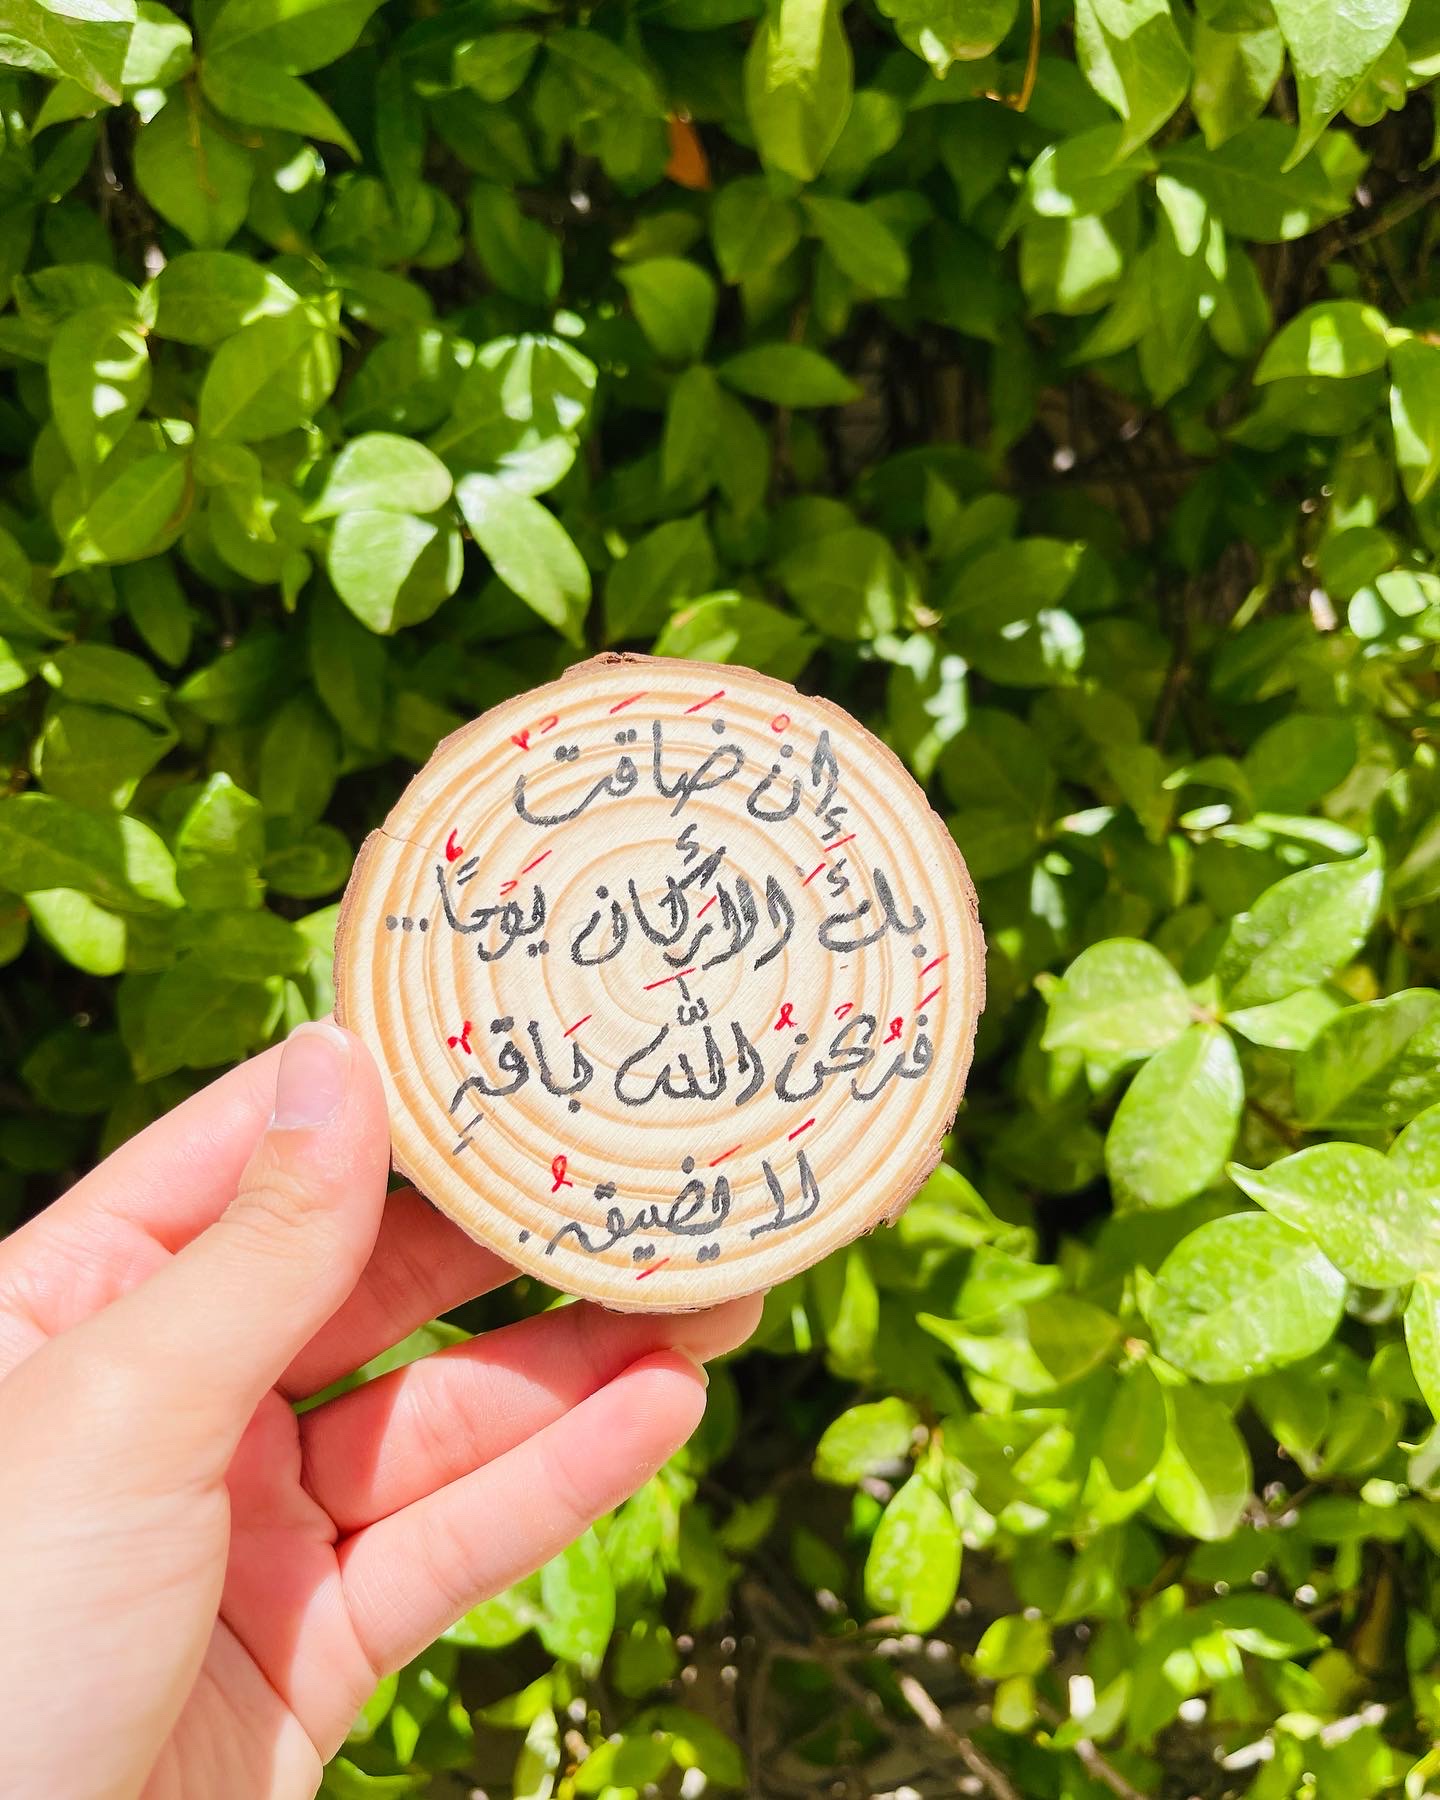 إنْ ضَاقَتْ
بِكَ الأَرْكَانُ يَوْمًا...
فَرُكْنُ اللَّه بَاقٍ
لَا يَضِيقُ.